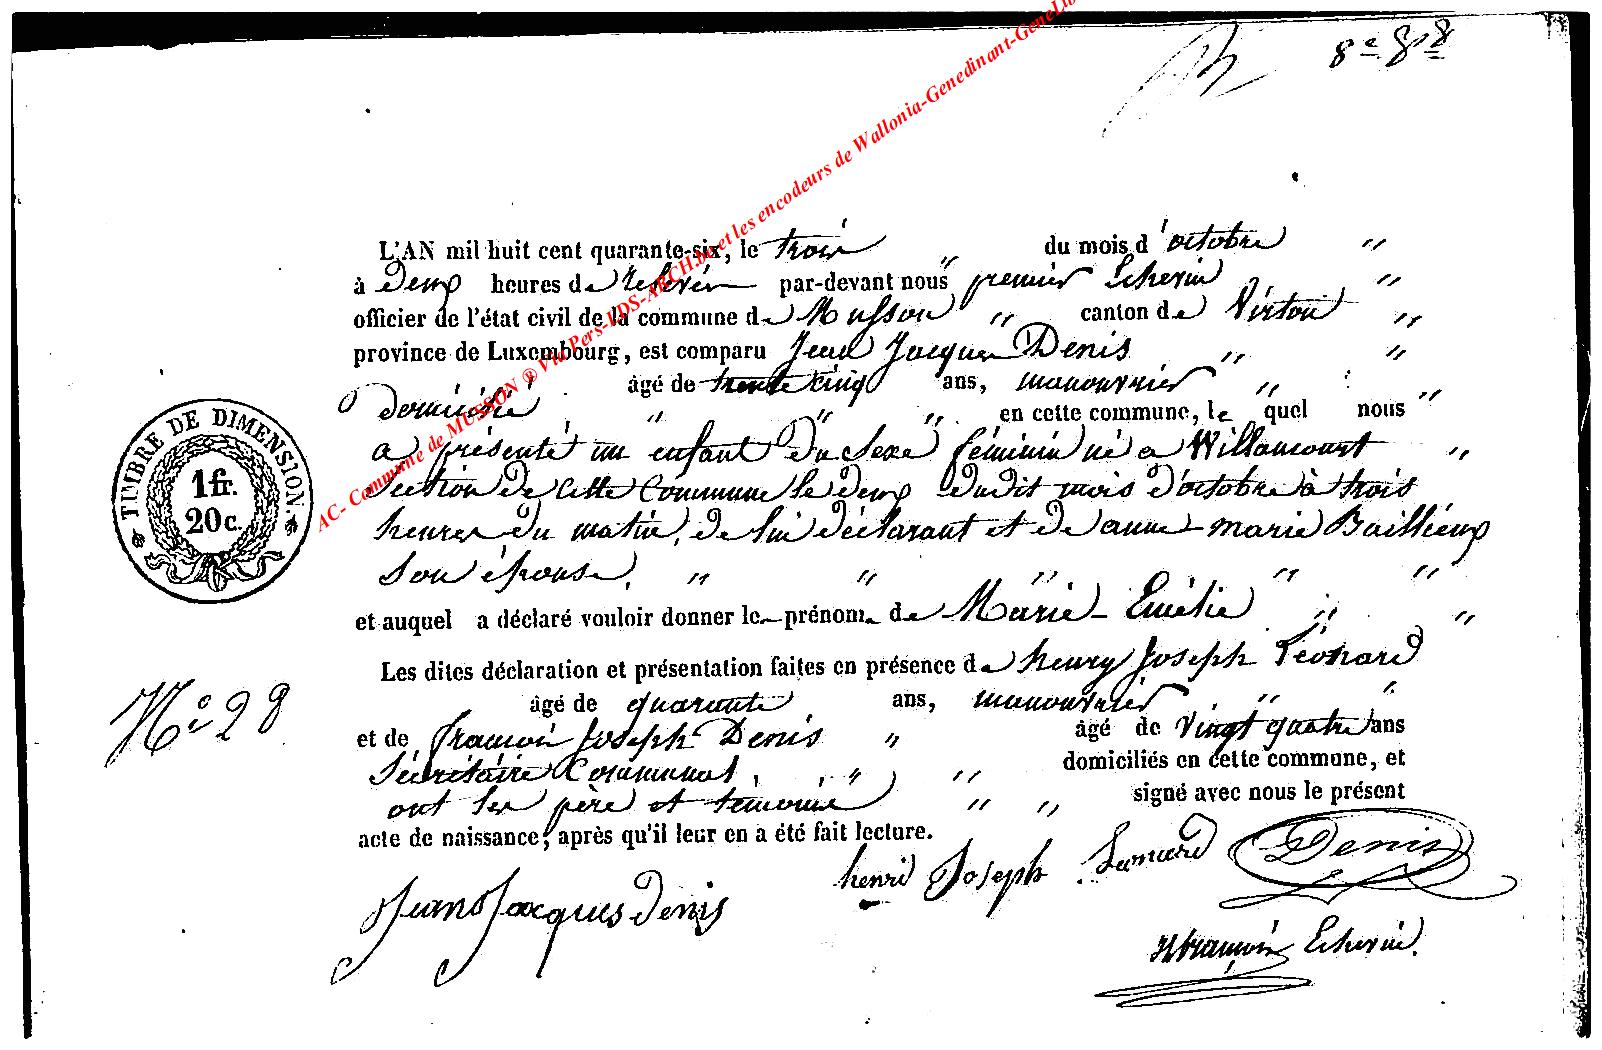 8e 8bre
L'AN mil huit cent quarante-six, le trois " du mois d'octobre "
à deux heures de relevée par-devant nous premier Echevin "
officier de l'état civil de la commune de Musson " canton de Virton "
province de Luxembourg, est comparu Jean Jacques Denis " "
âgé de trente cinq ans, manouvrier "
domicilié " " " en cette commune, lequel nous "
a présenté un enfant du sexe féminin né a Willancourt "
section de cette Commune le deux dudit mois d'octobre à trois
heures du matin, de lui déclarant et de anne-marie Baillieux
son épouse, " " " " "
et auquel a déclaré vouloir donner le prénom de Marie-Emélie " "
Les dites déclaration et présentation faites en présence de henry Joseph Léonard
âgé de quarante ans, manouvrier " "
et de françois Joseph Denis " âgé de vingt quatre ans
Sécrétaire Communal, " " domiciliés en cette commune, et
ont les père et témoins " " signé avec nous le présent
acte de naissance, après qu'il leur en a été fait lecture.
TIMBRE DE DIMENSION.
1 fr.
20 c.
No 28
henri Joseph Denis
Jean Jacques Denis
Echevin.
AC- Commune de MUSSON ® Via Pers-LDS-ARCH.be et les encodeurs de Wallonia-Genedinant-GeneLib